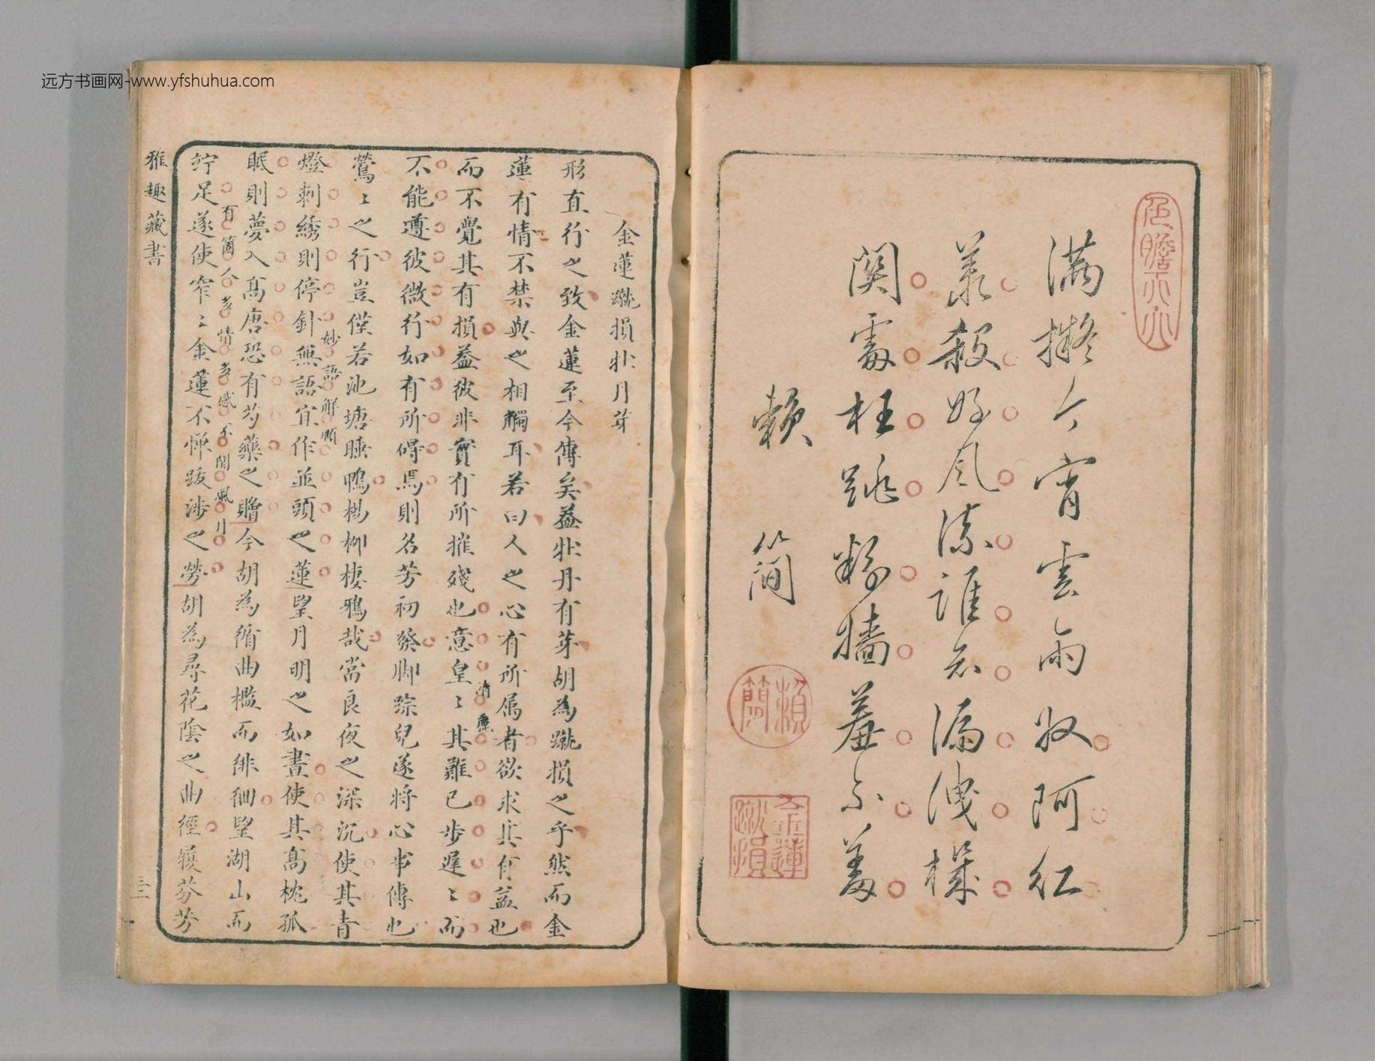 远方书画网-www.yfshuhua.com
色瞻天大
满擬今宵雲雨收阿红
業殺好風流誰知漏洩機
関霎枉跳粉墙羞不羞
賴簡
賴簡
金蓮蹴損
金蓮蹴損牡丹芽
形直行之致金蓮至今傳矣蓋牡丹有芽胡為蹴損之乎然而金
蓮有情不禁與之相觸耳若曰人之心有所属者欲求其有益也
而不覺其有損益彼非實有所摧殘也意皇〻其雖已步遲〻而
不能遵彼微行如有所碍焉則名芳初發脚踪兒遂將心事傳也
鶯〻之行豈僅若池塘睡鴨楊柳棲鴉哉當良夜之深沉使其青
妙語解頤
燈刺綉則停針無語宜作並頭之蓮望月明之如晝使其高枕孤
眠則夢入高唐恐有芍藥之贈今胡為循曲檻而徘徊望湖山而
有箇人多情多感不関風月
竚足遂使窄〻金蓮不憚跋涉之勞胡為尋花陰之曲徑蘋芬芳
雅趣藏書